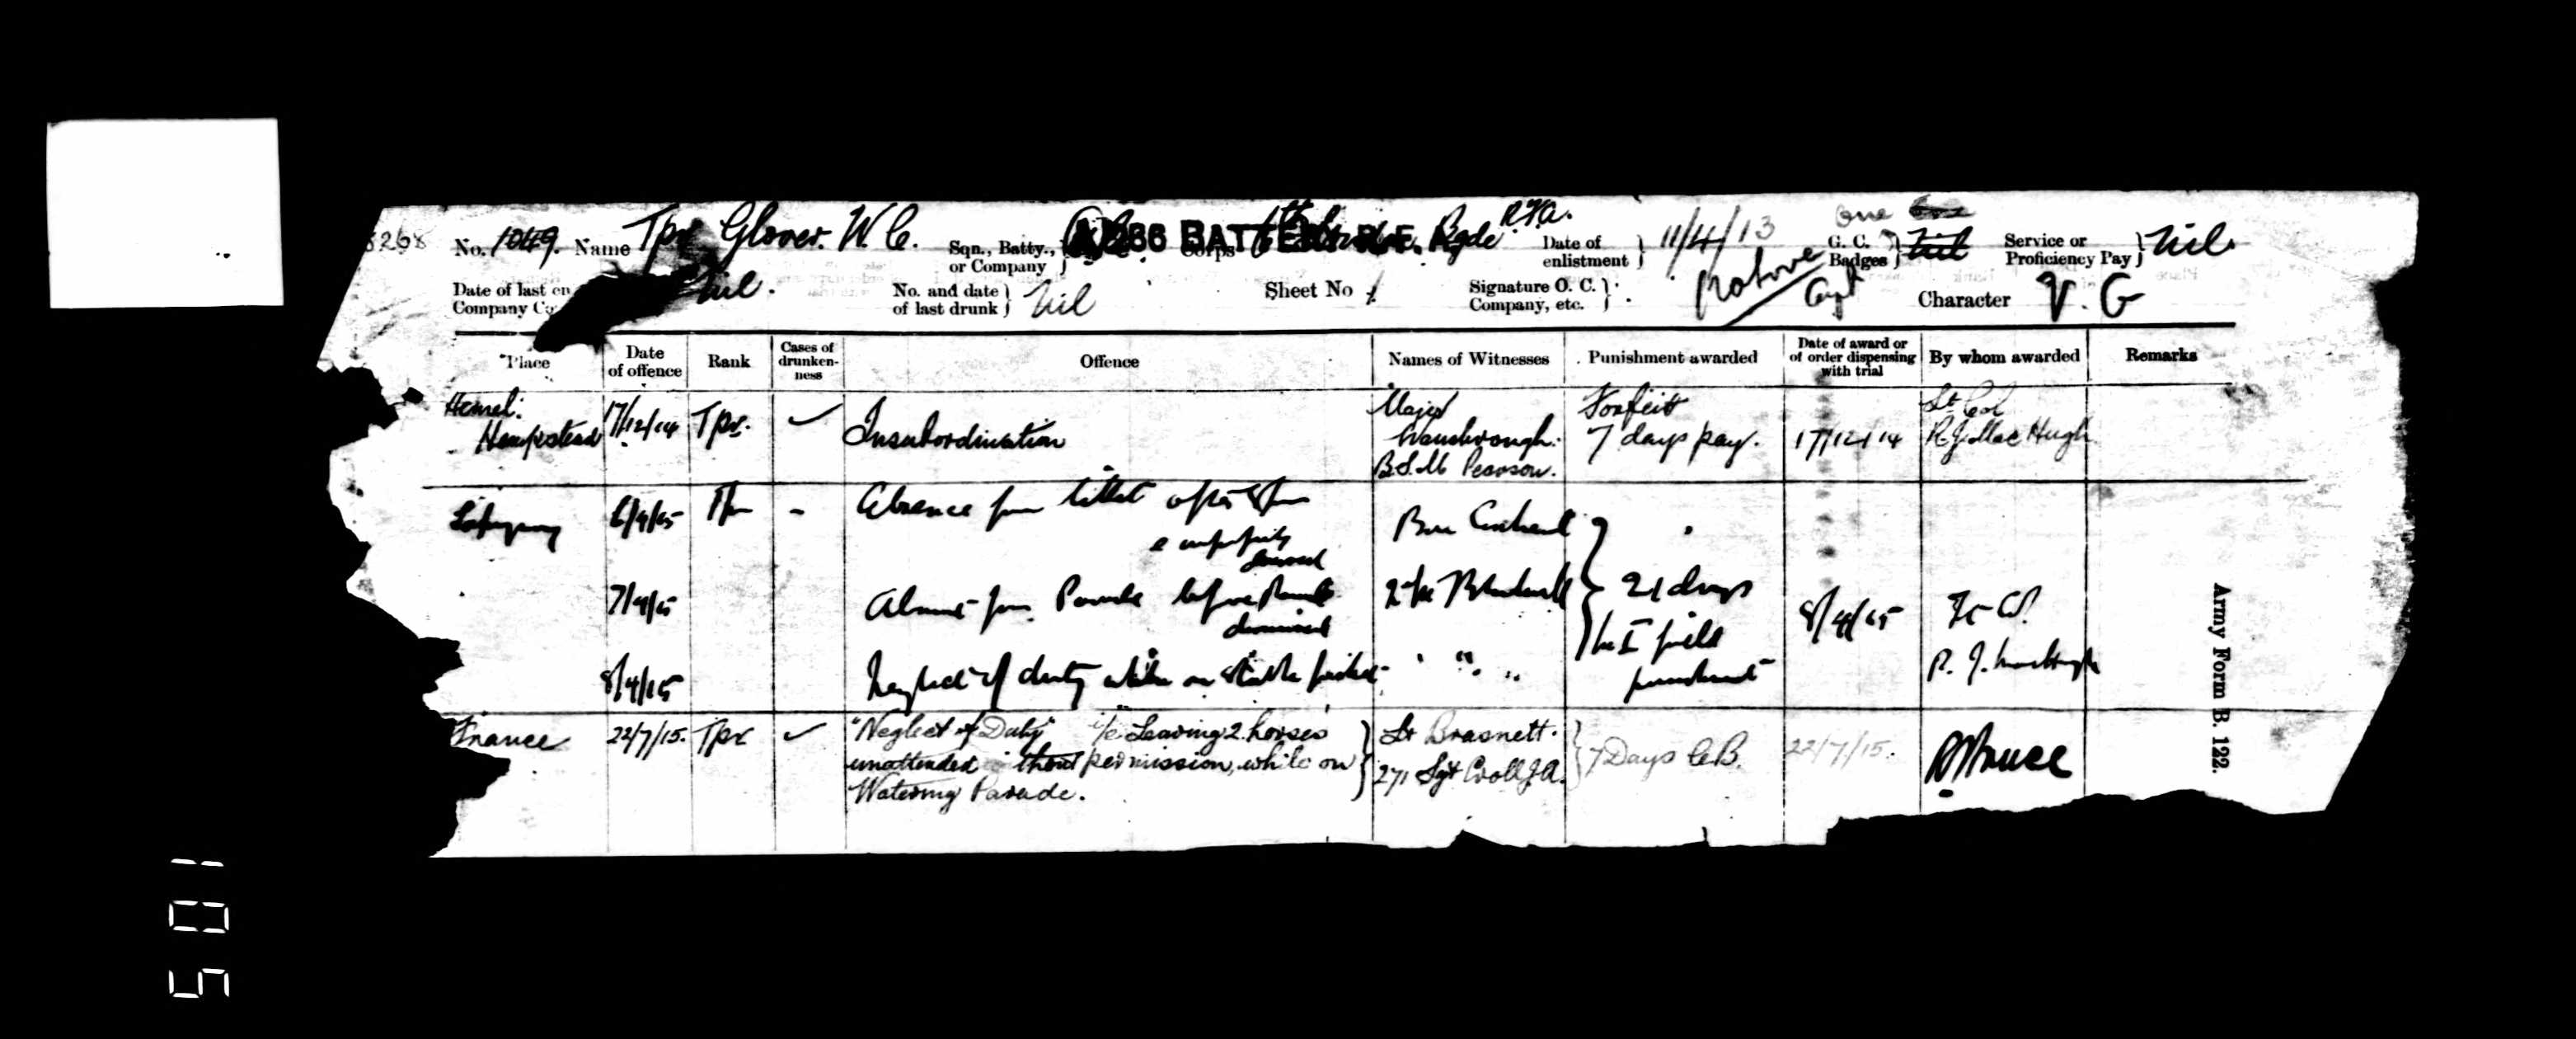 3268 No. 1049. Name Tpr Glover. W. C. Sqn., Batty., or Company } A/236 BATTERY R.F.A. Corps 6th London Bgde R.F.A. Date of enlistment } 11/4/13 G. C. Badges } One Nil Service or Proficiency Pay } Nil.
Date of last en Company Co Nil. No. and date of last drunk } Nil Sheet No 1 Signature O. C. Company, etc. } Capt Character V. G
Place Date of offence Rank Cases of drunken-ness Offence Names of Witnesses Punishment awarded Date of award or of order dispensing with trial By whom awarded Remarks
Hemel. Hempstead 17/12/14 Tpr. Insubordination Major B.S.M Pearson. Forfeit 7 days pay. 17/12/14 Lt Col R.J. MacHugh
6/4/15 Tpr - Absence from billet after 9 pm
& improperly dressed
7/4/15 Absent from Parade before Parade dismissed 21 days 8/4/15 Lt Col.
8/4/15 Neglect of duty while on stable picket " " " No I field punishment R. J. MacHugh
France 22/7/15. Tpr "Neglect of Duty" i/e Leaving 2 horses Lt Brasnett. 7 Days C.B. 22/7/15.
unattended without permission, while on 271 Sgt Croll J.A.
Watering Parade.
Army Form B. 122.
501